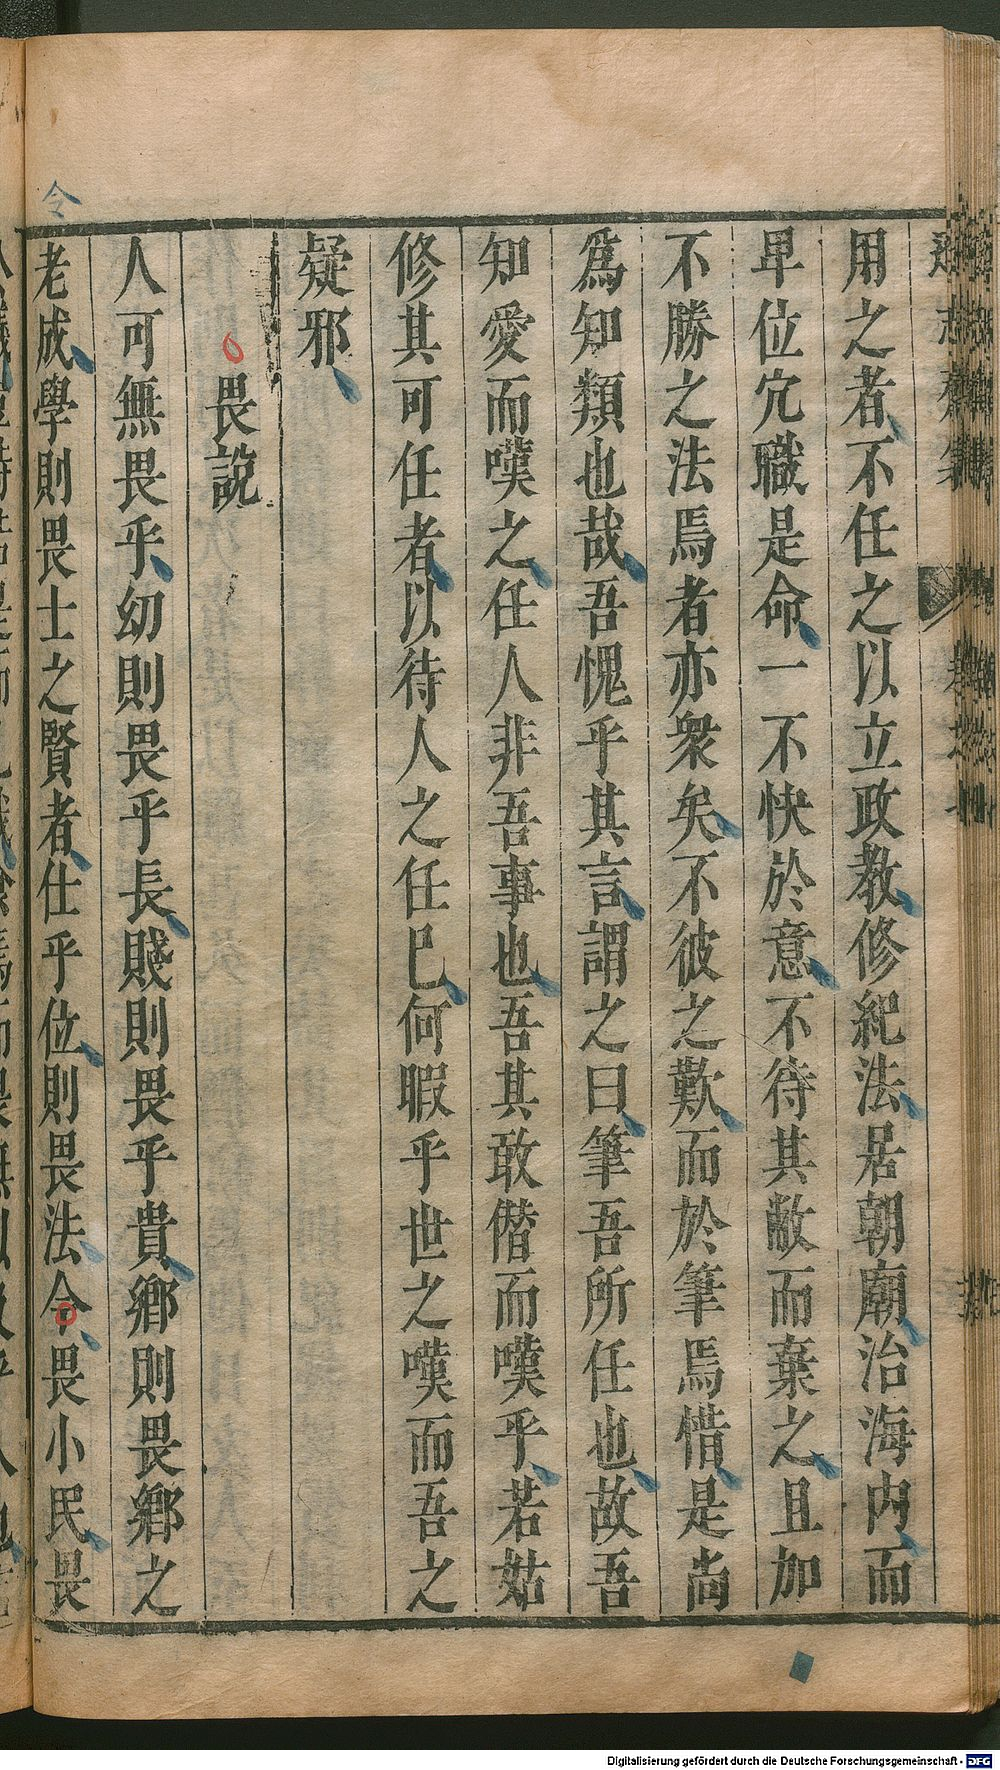 用之者不任之以立政教修紀法居朝廟治海内而
卑位宂職是命一不快於意不待其敝而棄之且加
不勝之法焉者亦衆矣不彼之歎而於筆焉惜是尚
爲知類也哉吾愧乎其言謂之曰筆吾所任也故吾
知愛而嘆之任人非吾事也吾其敢僭而嘆乎若姑
修其可任者以待人之任已何暇乎世之嘆而吾之
疑邪
畏說
人可無畏乎幼則畏乎長賤則畏乎貴鄉則畏鄉之
老成學則畏士之賢者仕乎位則畏法令畏小民畏
令
Digitalisierung gefördert durch die Deutsche Forschungsgemeinschaft - DFG